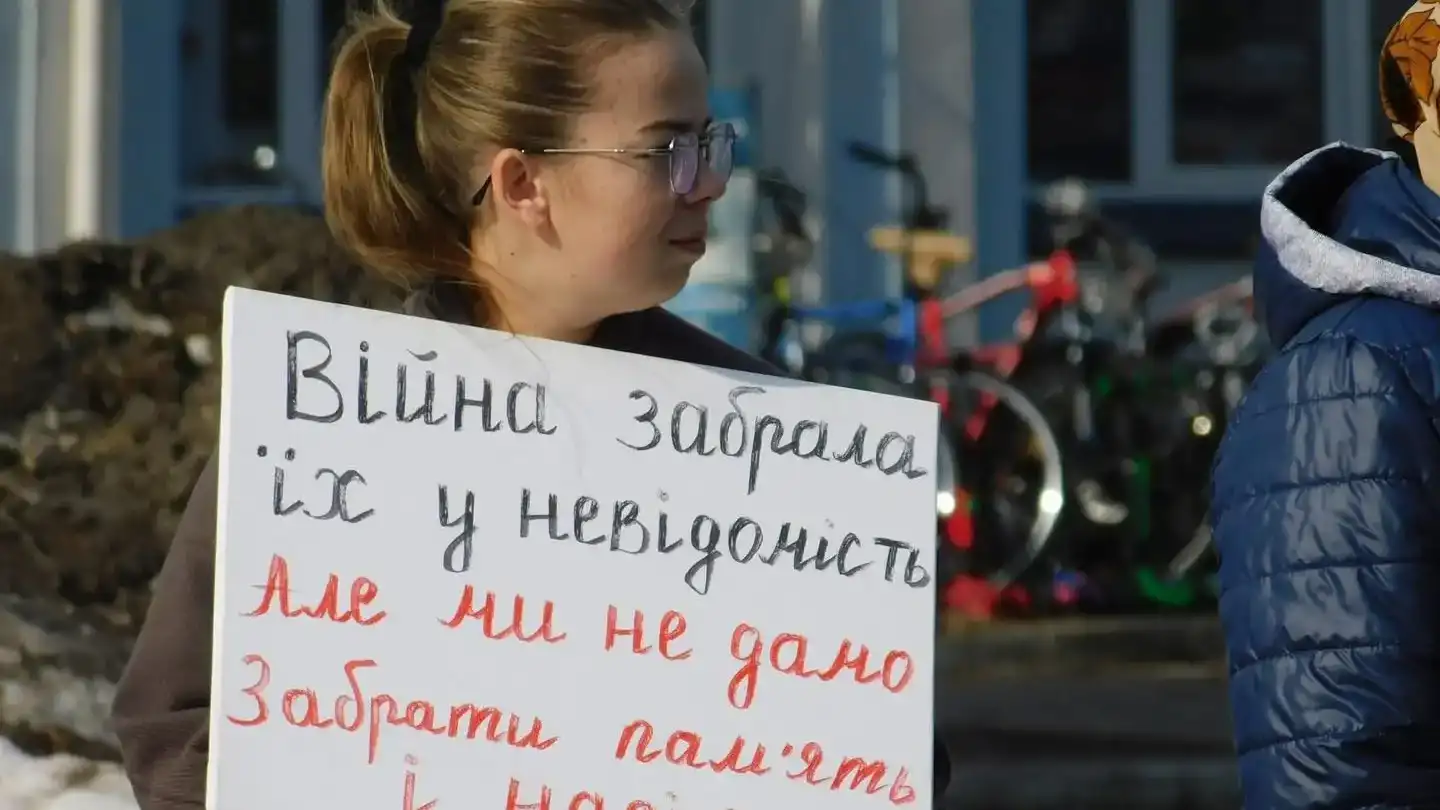 Війна забрала
їх у невідомість
Але ми не дамо
Забрати пам'ять
і